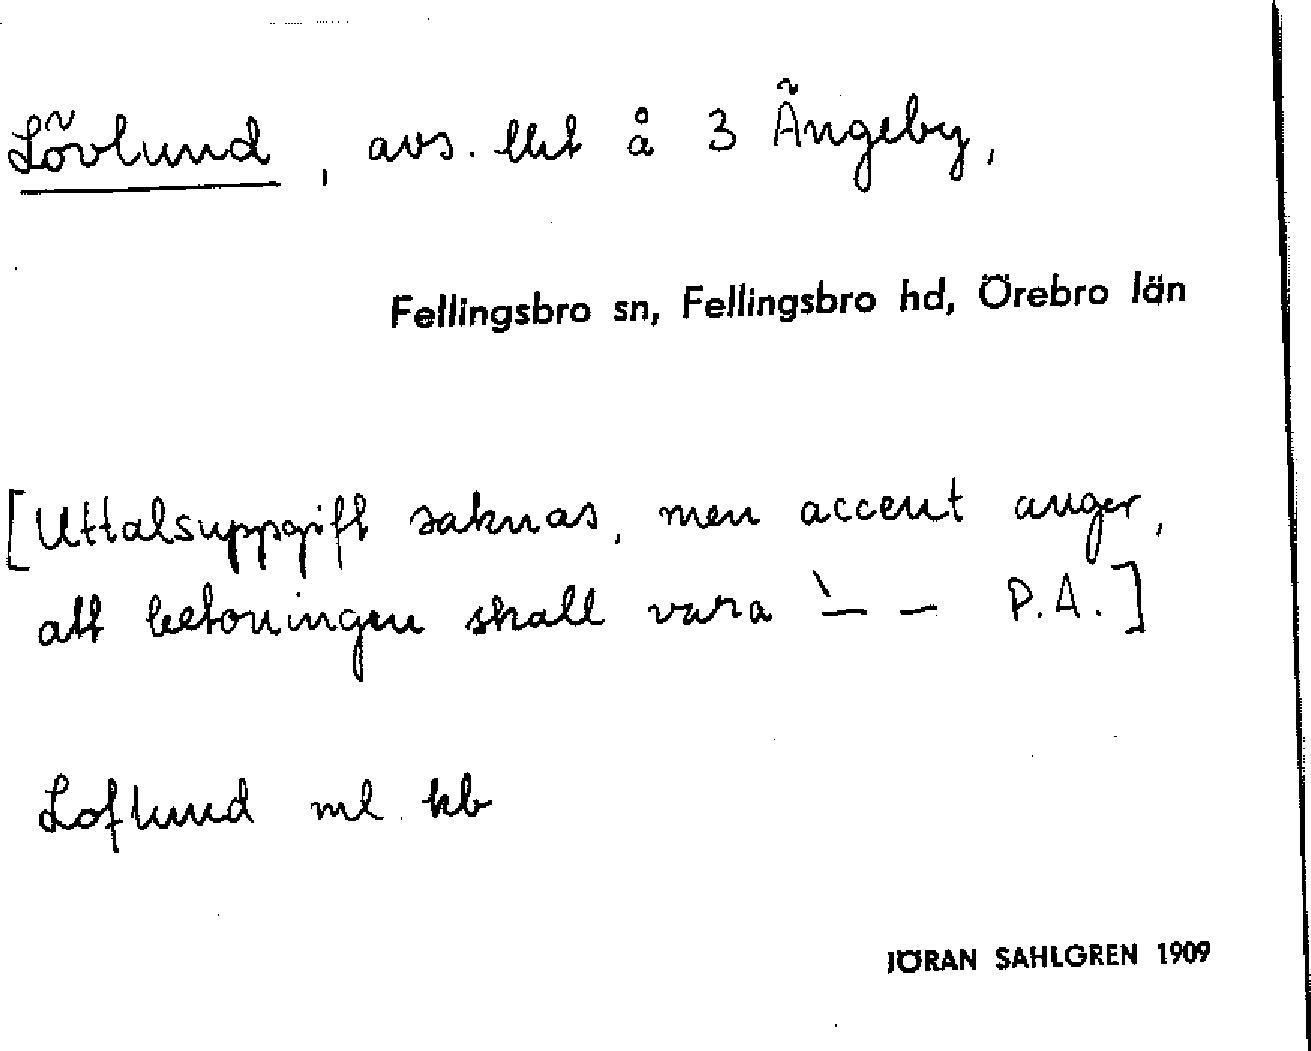 Lövlund, avs. lht å 3 Ängeby,
Fellingsbro sn, Fellingsbro hd, Örebro län
[Uttalsuppgift saknas, men accent anger,
att betoningen skall vara `— — P.A.]
Loflund ml kb
JÖRAN SAHLGREN 1909